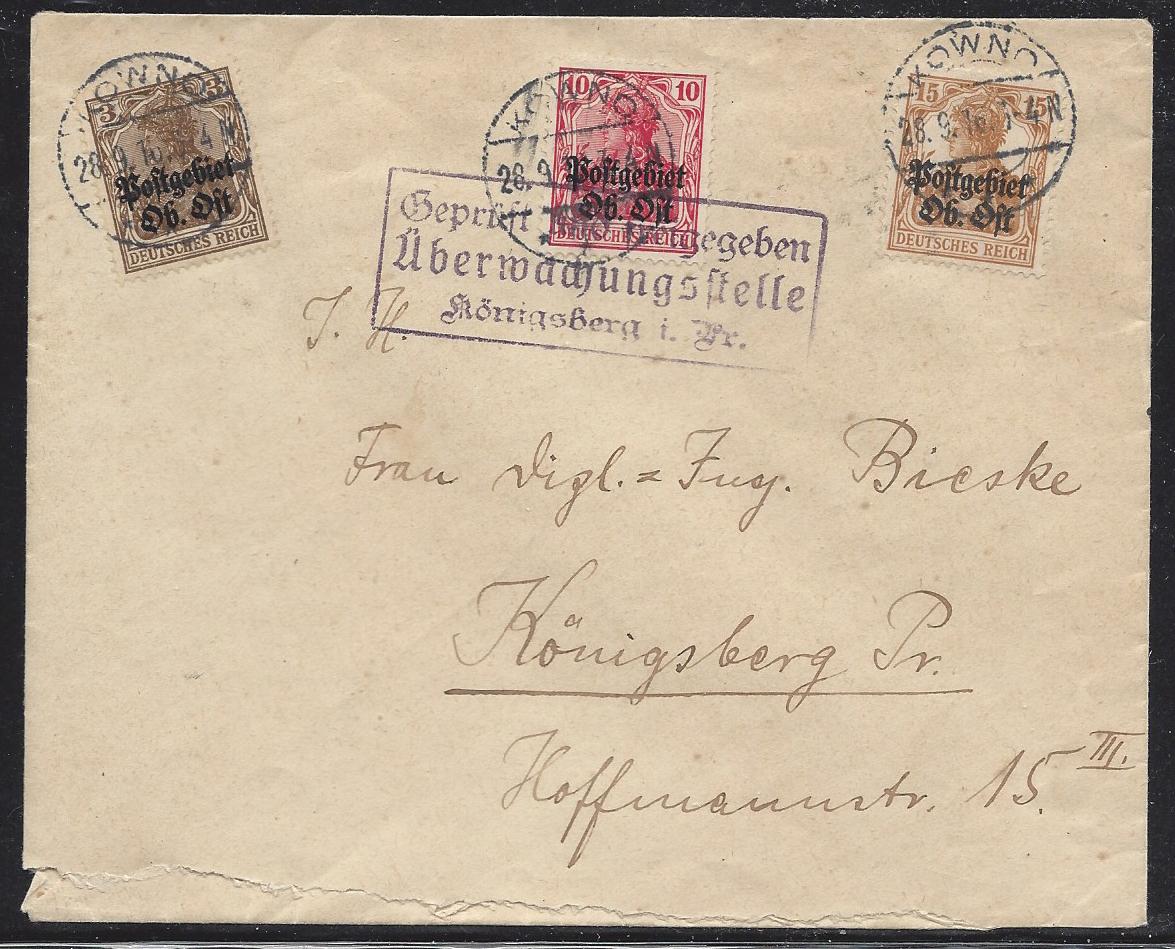 KOWNO
28.9.16. 4 N
3 3
Postgebiet
Ob. Ost
DEUTSCHES REICH
KOWNO
28.9. 4 N
10 10
Postgebiet
Ob. Ost
DEUTSCHES REICH
KOWNO
28.9.16. 4 N
15 15
Postgebiet
Ob. Ost
DEUTSCHES REICH
Geprüft gegeben
Überwachungsstelle
Königsberg i. Pr.
J. H.
Frau Dipl.=Ing. Bieske
Königsberg Pr.
Hoffmannstr. 15. III.